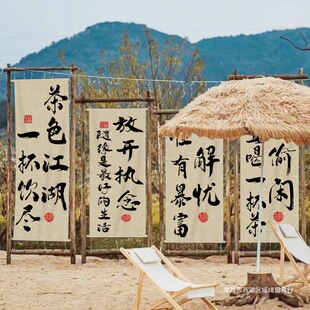 茶色江湖
一杯饮尽
放开执念
随缘是最好的生活
解忧
有暴富
偷闲
一杯茶